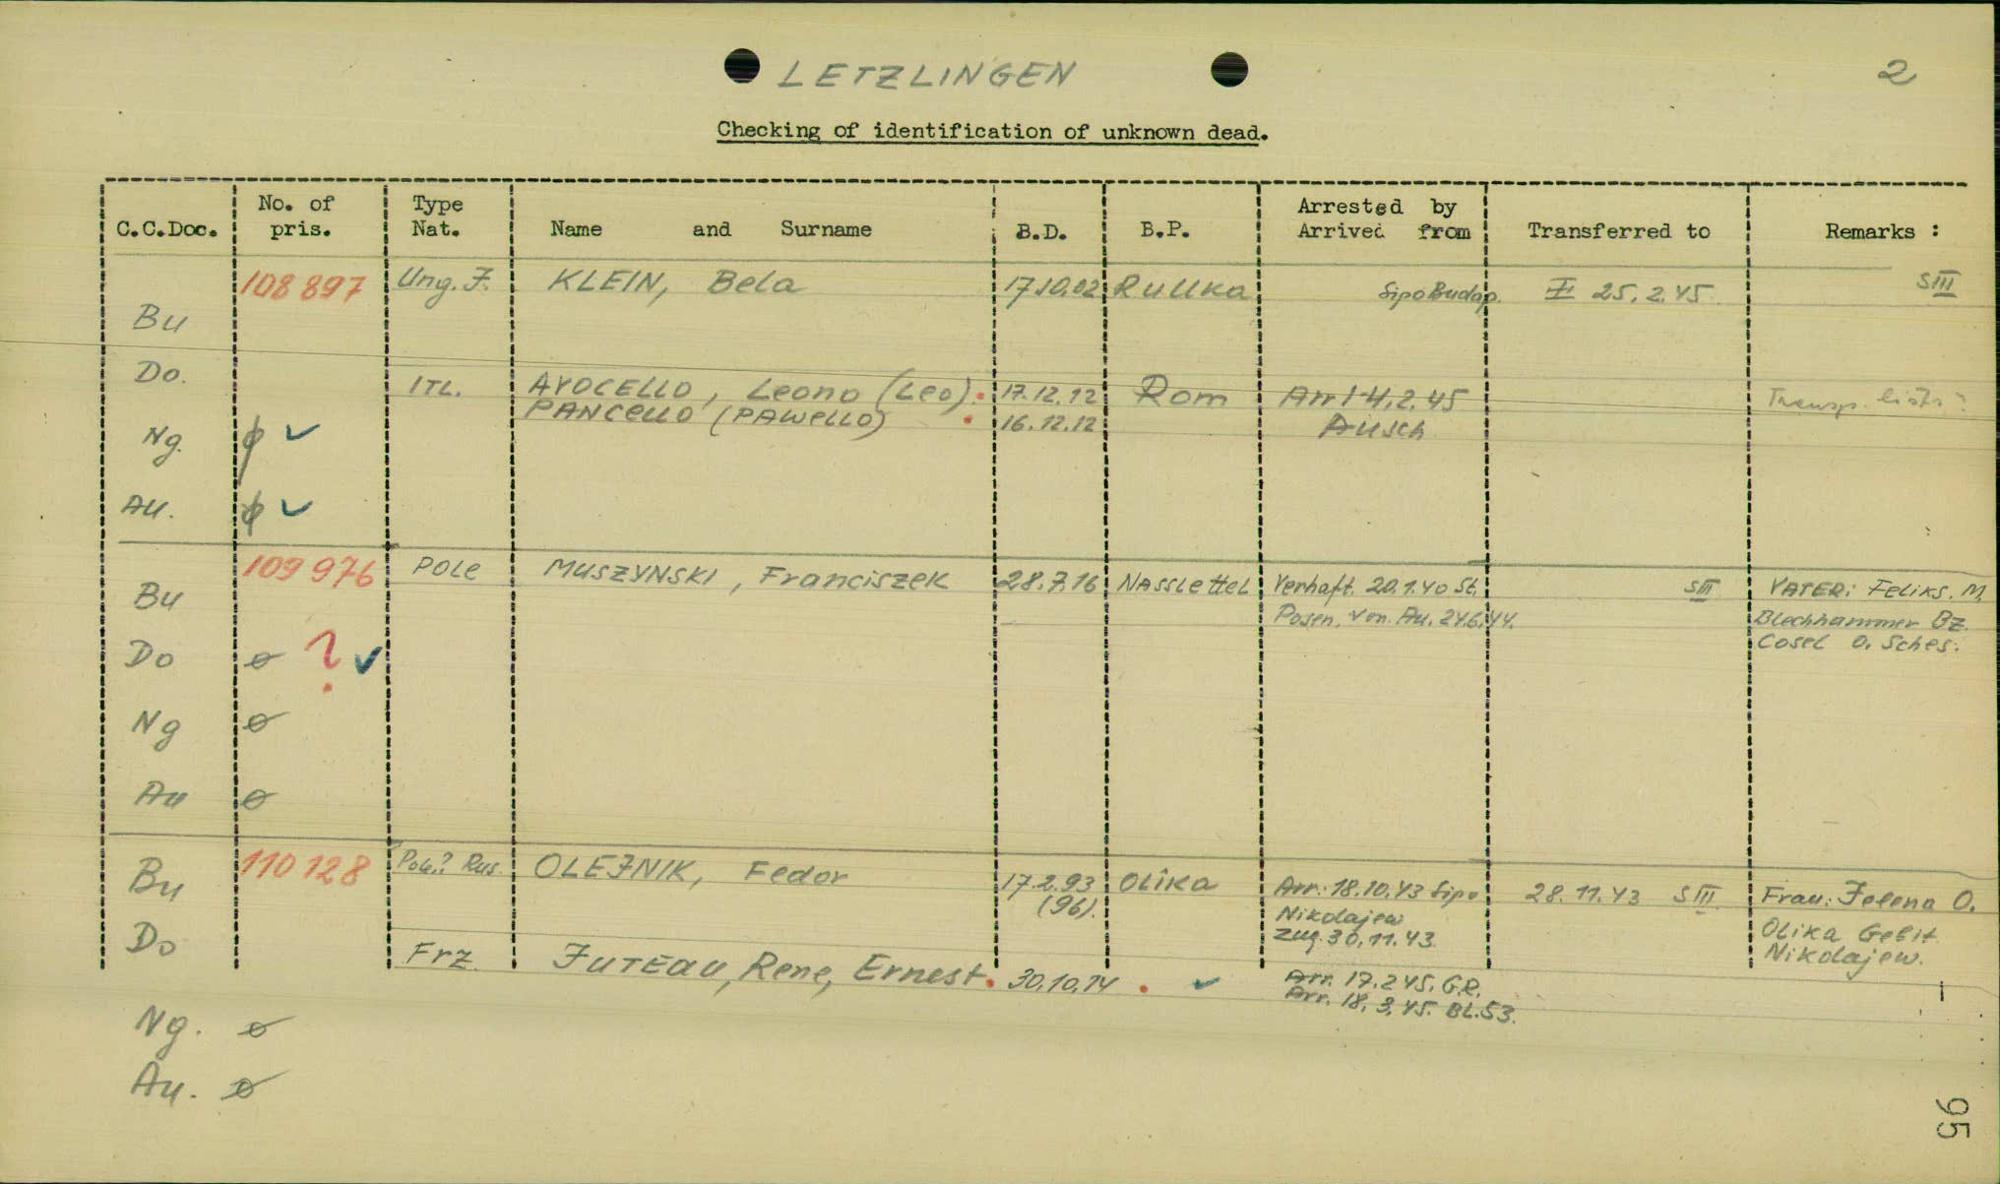 LETZLINGEN
2
Checking of identification of unknown dead.
C.C.Doc. No. of pris. Type Nat. Name and Surname B.D. B.P. Arrested by Arrived from Transferred to Remarks :
108 897 Ung. J. KLEIN, Bela 17.10.02 Rullka Sipo Budap. 25.2.45 SIII
Bu
Do. ITL. AVOCELLO, Leono (Leo). 17.12.12 Rom Arr 14.2.45 Transp.
PANCELLO (PAWELLO) 16.12.12 Ausch
Ng. ø ✓
Au. ø ✓
109 976 POLE MUSZYNSKI, Franciszek 28.7.16 NASSLETTEL Verhaft. 20.1.40 St. SIII VATER: Feliks. M.
Bu Posen. von. Au. 24.6.44. Blechhammer Bz.
Do ø ? ✓ Cosel O. Sches.
Ng ø
Au ø
110 128 Pole? Rus. OLEJNIK, Fedor 17.2.93 OLIKA Arr. 18.10.43 Sipo 28.11.43 SIII Frau: Jelena O.
Bu (96). Nikolajew Olika Gebit
Do zug. 30.11.43. Nikolajew.
Frz. JUTEAU, Rene, Ernest. 30.10.14 . ✓ Arr. 17.2.45. G.R.
Arr. 18.3.45. BL.53.
Ng. ø
Au. ø
95